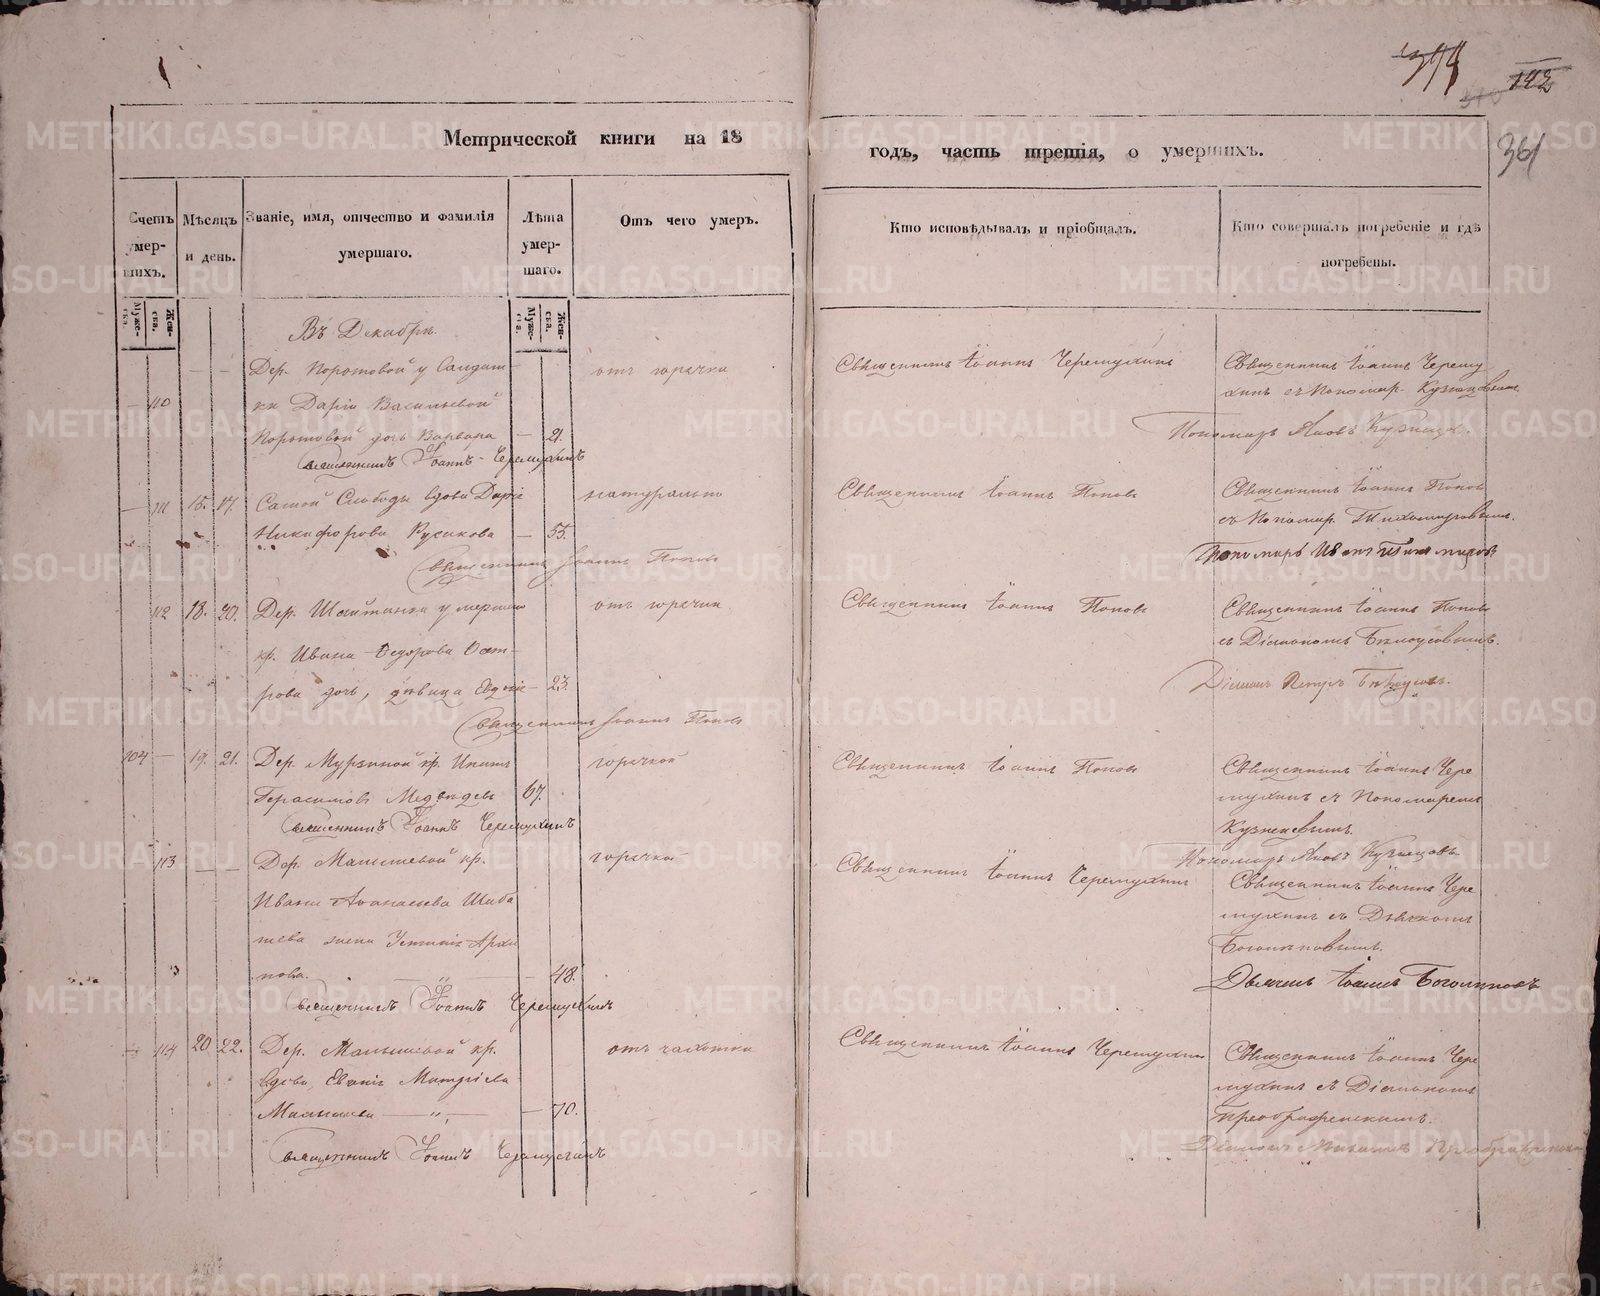 394
142
361
Метрической книги на 18
годъ, часть третія, о умершихъ.
Счетъ умер-
шихъ.
Мѣсяцъ
и день.
Званіе, имя, отчество и фамилія
умершаго.
Лѣта
умер-
шаго.
Отъ чего умеръ.
Кто исповѣдывалъ и пріобщалъ.
Кто совершалъ погребеніе и гдѣ
погребены.
Муже-
ска.
Жен-
ска.
Муже-
ска.
Жен-
ска.
Въ Декабрѣ.
Дер. Коротовой у Солдат
110 ки Дарьи Васильевой
Коротовой дочь Варвара — 21.
отъ горячки
Священникъ Іоаннъ Черемухинъ
Священникъ Іоаннъ Черему
хинъ съ Пономар. Кузнецовымъ
Пономарь Яковъ Кузнецовъ
Священникъ Іоаннъ Черемухинъ
— 111 15. 17. Самой Слободы вдова Дарья
Никифорова Русакова — 55.
натурально
Священникъ Іоаннъ Поповъ
Священникъ Іоаннъ Поповъ
съ Пономар. Тихомировымъ.
Пономарь Иванъ Тихомировъ
Священникъ Іоаннъ Поповъ
112 18. 20. Дер. Шайтанки умерш
кр. Ивана Ѳедорова
дочь, дѣвица — 23.
отъ горячки
Священникъ Іоаннъ Поповъ
Священникъ Іоаннъ Поповъ
съ Діакономъ Бѣлоусовымъ.
Діаконъ Петръ Бѣлоусовъ.
Священникъ Іоаннъ Поповъ
104 — 19. 21. Дер. Мурзиной кр. Игнатъ
Герасимовъ Медвѣдевъ 67.
горячкой
Священникъ Іоаннъ Поповъ
Священникъ Іоаннъ Чере
мухинъ съ Пономаремъ
Кузнецовымъ.
Пономарь Яковъ Кузнецовъ
Священникъ Іоаннъ Черемухинъ
113 — — Дер. Малышевой кр.
Ивана Аѳанасьева Шаба
шева жена Устинья Архи
пова. — 48.
горячкой
Священникъ Іоаннъ Черемухинъ
Священникъ Іоаннъ Чере
мухинъ съ Дьячкомъ
Боголѣповымъ.
Дьячекъ Іоаннъ Боголѣповъ
Священникъ Іоаннъ Черемухинъ
— 114 20 22. Дер. Малышевой кр.
вдова,
Малышева — „ — — 70.
отъ чахотки
Священникъ Іоаннъ Черемухинъ
Священникъ Іоаннъ Чере
мухинъ съ Діакономъ
Преображенскимъ.
Діаконъ Преображенскій
Священникъ Іоаннъ Черемухинъ
METRIKI.GASO-URAL.RU